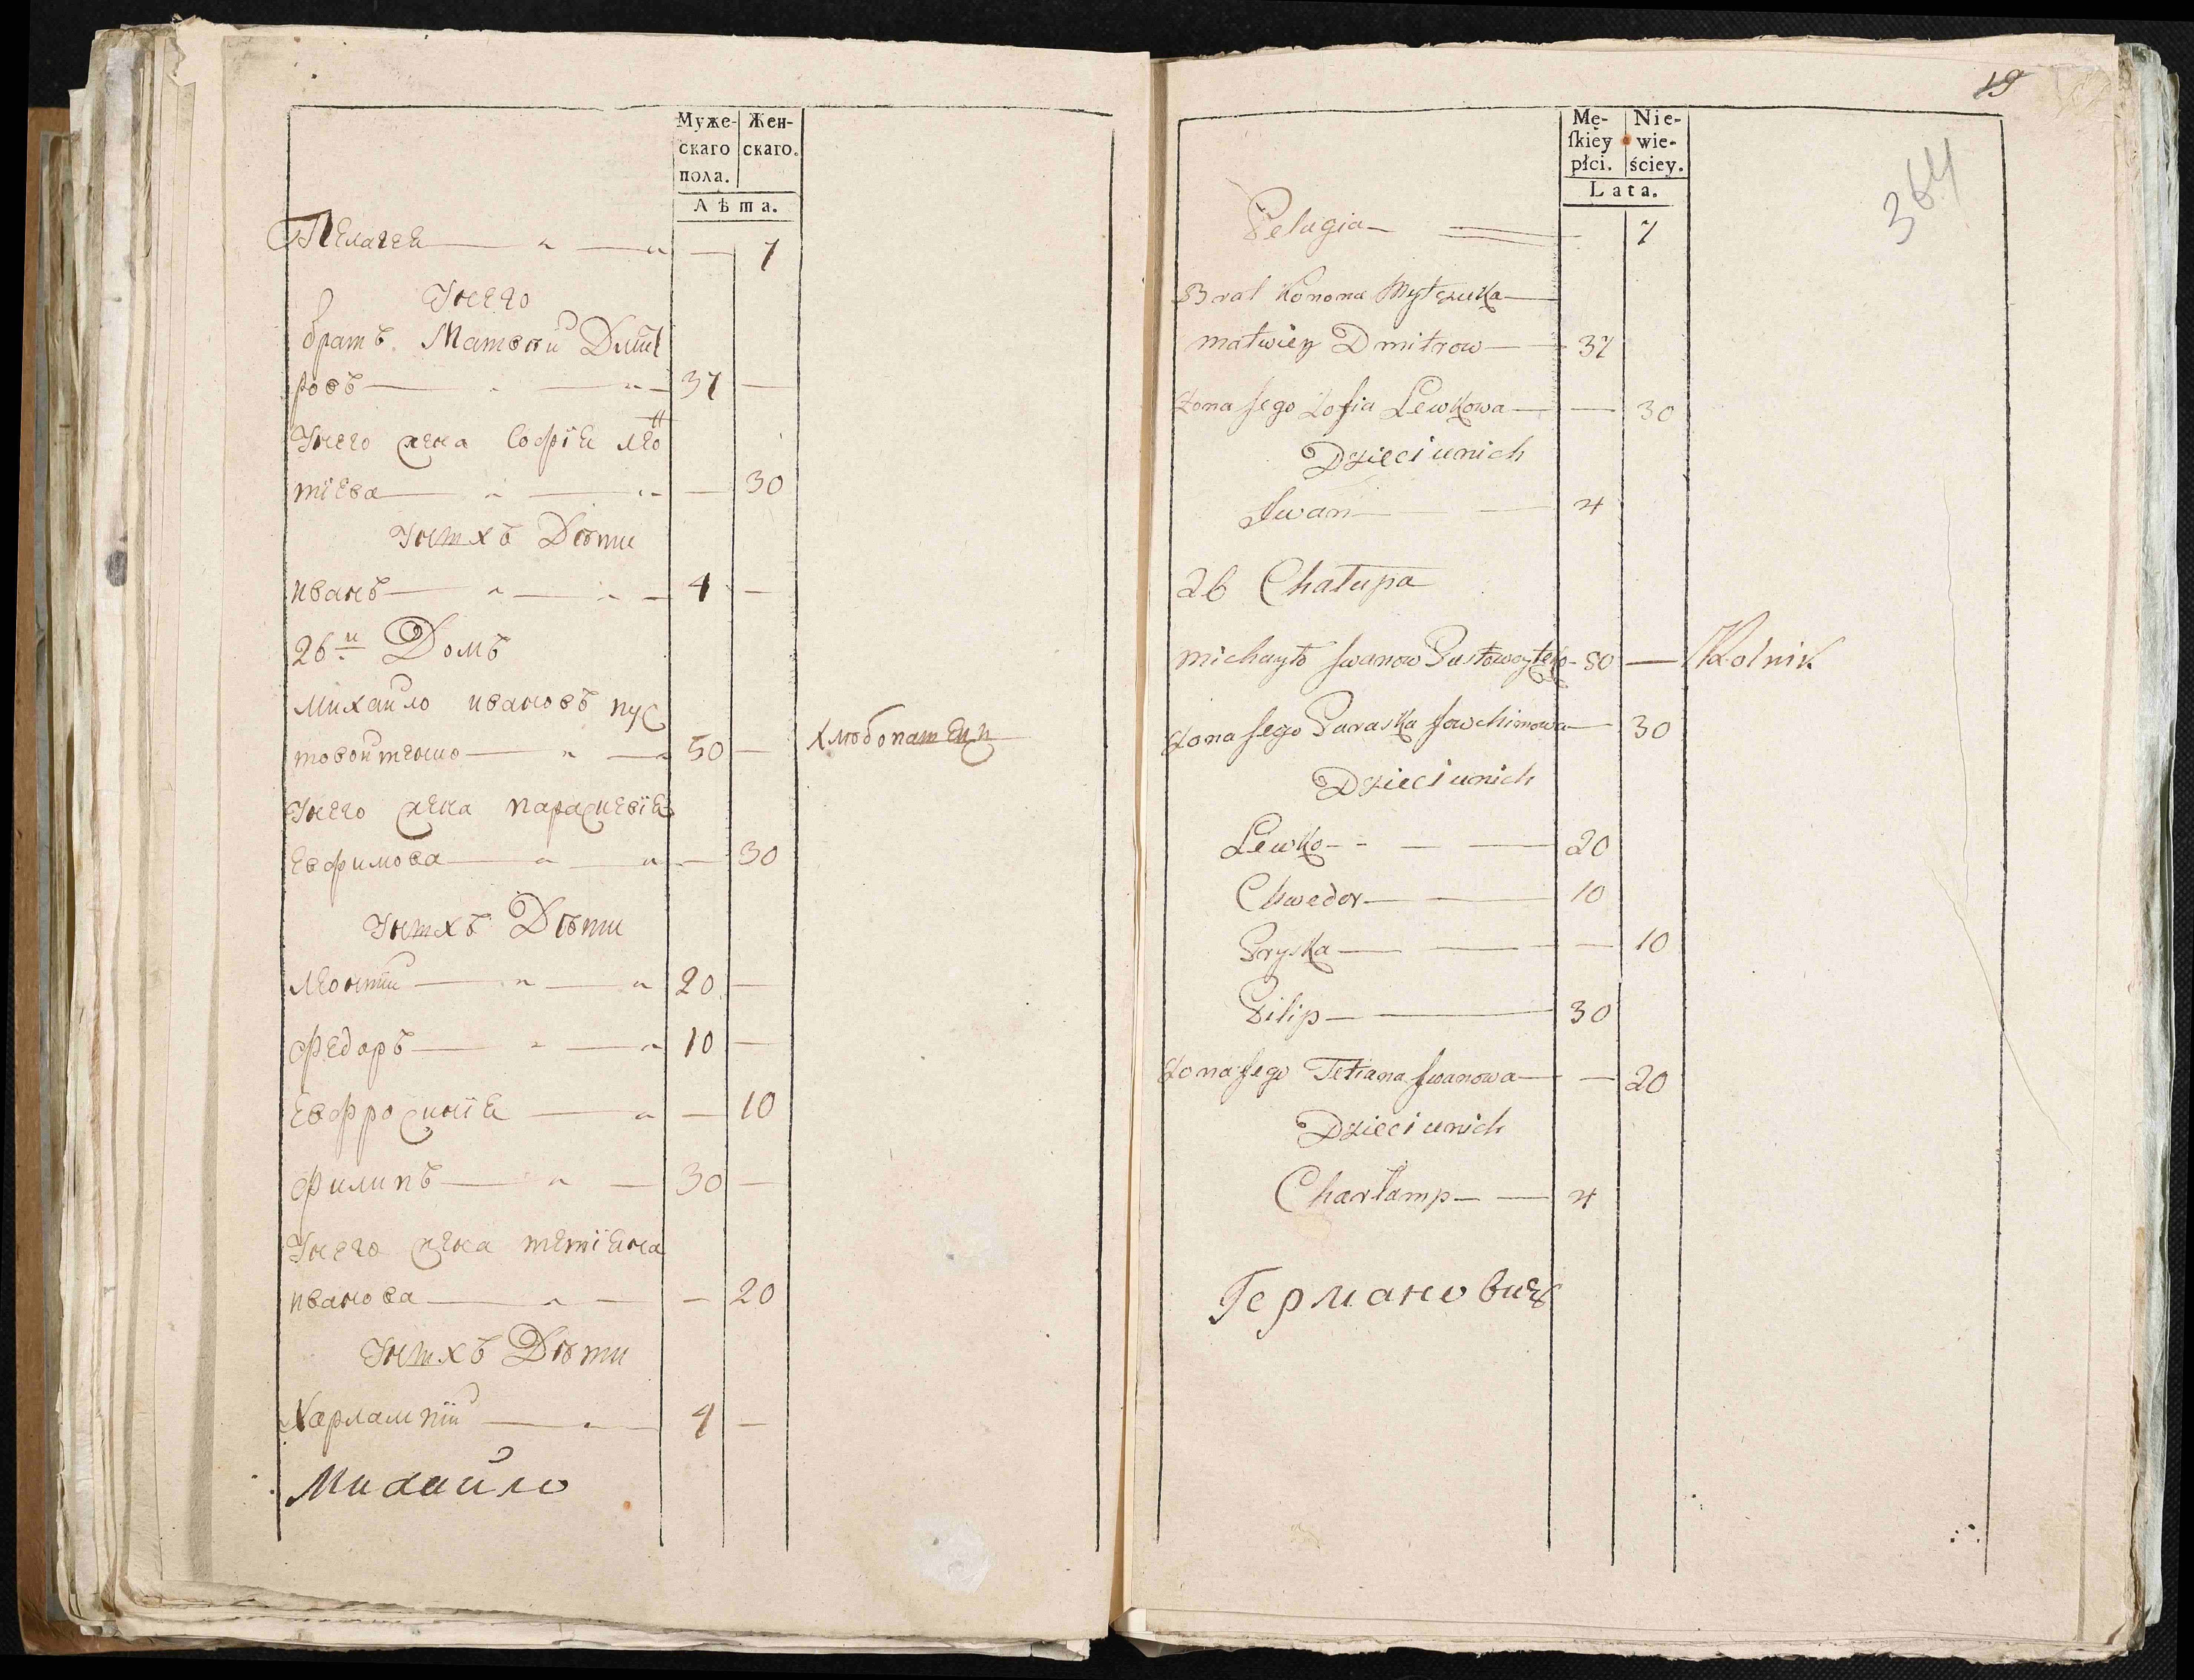 Муже- Жен-
скаго скаго.
пола.
Лѣта.
Пелагея 7
У него
братъ Матвѣй Дмит
ровъ 37
У него жена Софія Лео
нтіева 30
У нихъ Дѣти
иванъ 4
26й Домъ
михайло ивановъ пус
товойтенко 50 хлѣбопашец
У него жена параскевія
Евфимова 30
У нихъ Дѣти
леонтий 20
Федоръ 10
Евфросинія 10
Филипъ 30
У него жена тетіяна
иванова 20
У нихъ Дѣти
Харлампій 4
Михайло
19
364
Mę- Nie-
ſkiey wie-
płci. ściey.
Lata.
Pelagia 7
Brat Konona
matwiey Dmitrow 37
Żona Jego Zofia Lewkowa 30
Dzieci unich
Jwan 4
26 Chałupa
michayło Jwanow Pustowoytenko 50 Rolnik
Żona Jego Paraska Jowchimowa 30
Dzieci unich
Lewko 20
Chwedor 10
Pryska 10
Pilip 30
Żona Jego Tetiana Jwanowa 20
Dzieci unich
Charłamp 4
Германович